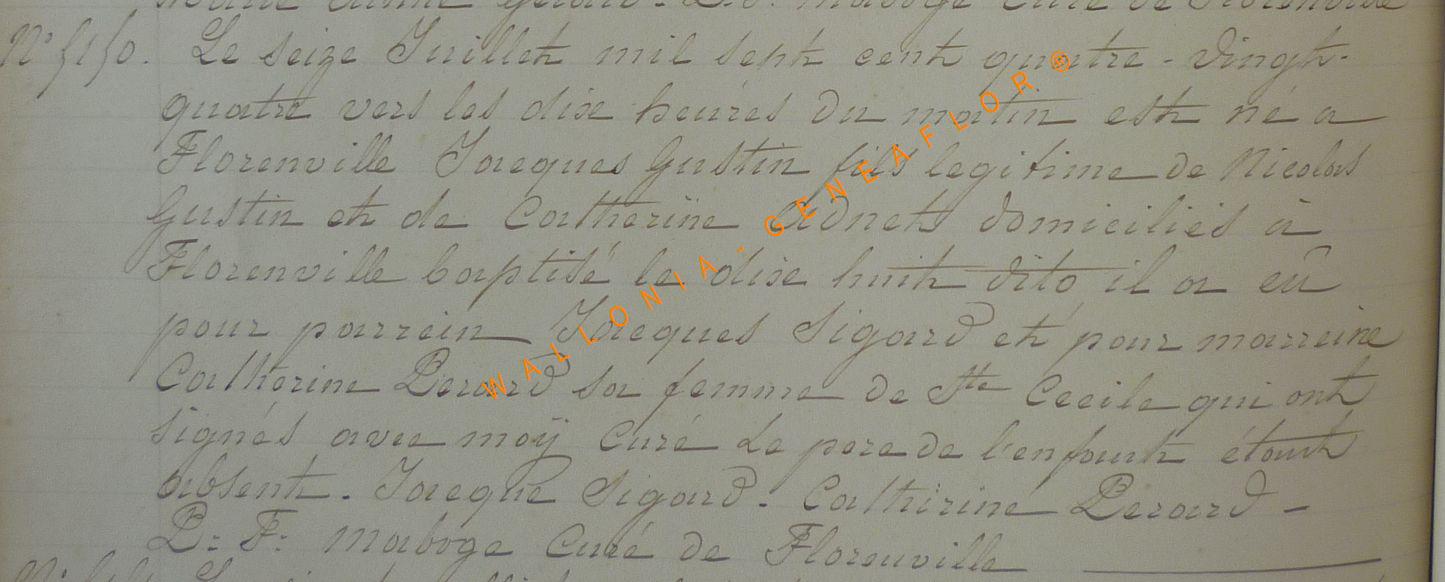 Curé de Florenville
N° 5150. Le seize Juillet mil sept cent quatre-vingt-
quatre vers les dix heures du matin est né a
Florenville Jacques Gustin fils legitime de Nicolas
Gustin et de Catherine domiciliés à
Florenville baptisé le dix huit dito il a eû
pour parrein Jacques Sigard et pour marreine
Catherine Perard sa femme de Ste Cecile qui ont
signés avec moÿ curé Le pere de l'enfant étant
absent. Jacque Sigard. Catherine Perard –
P: F: Maboge Curé de Florenville
WALLONIA - GENEAFLOR ®